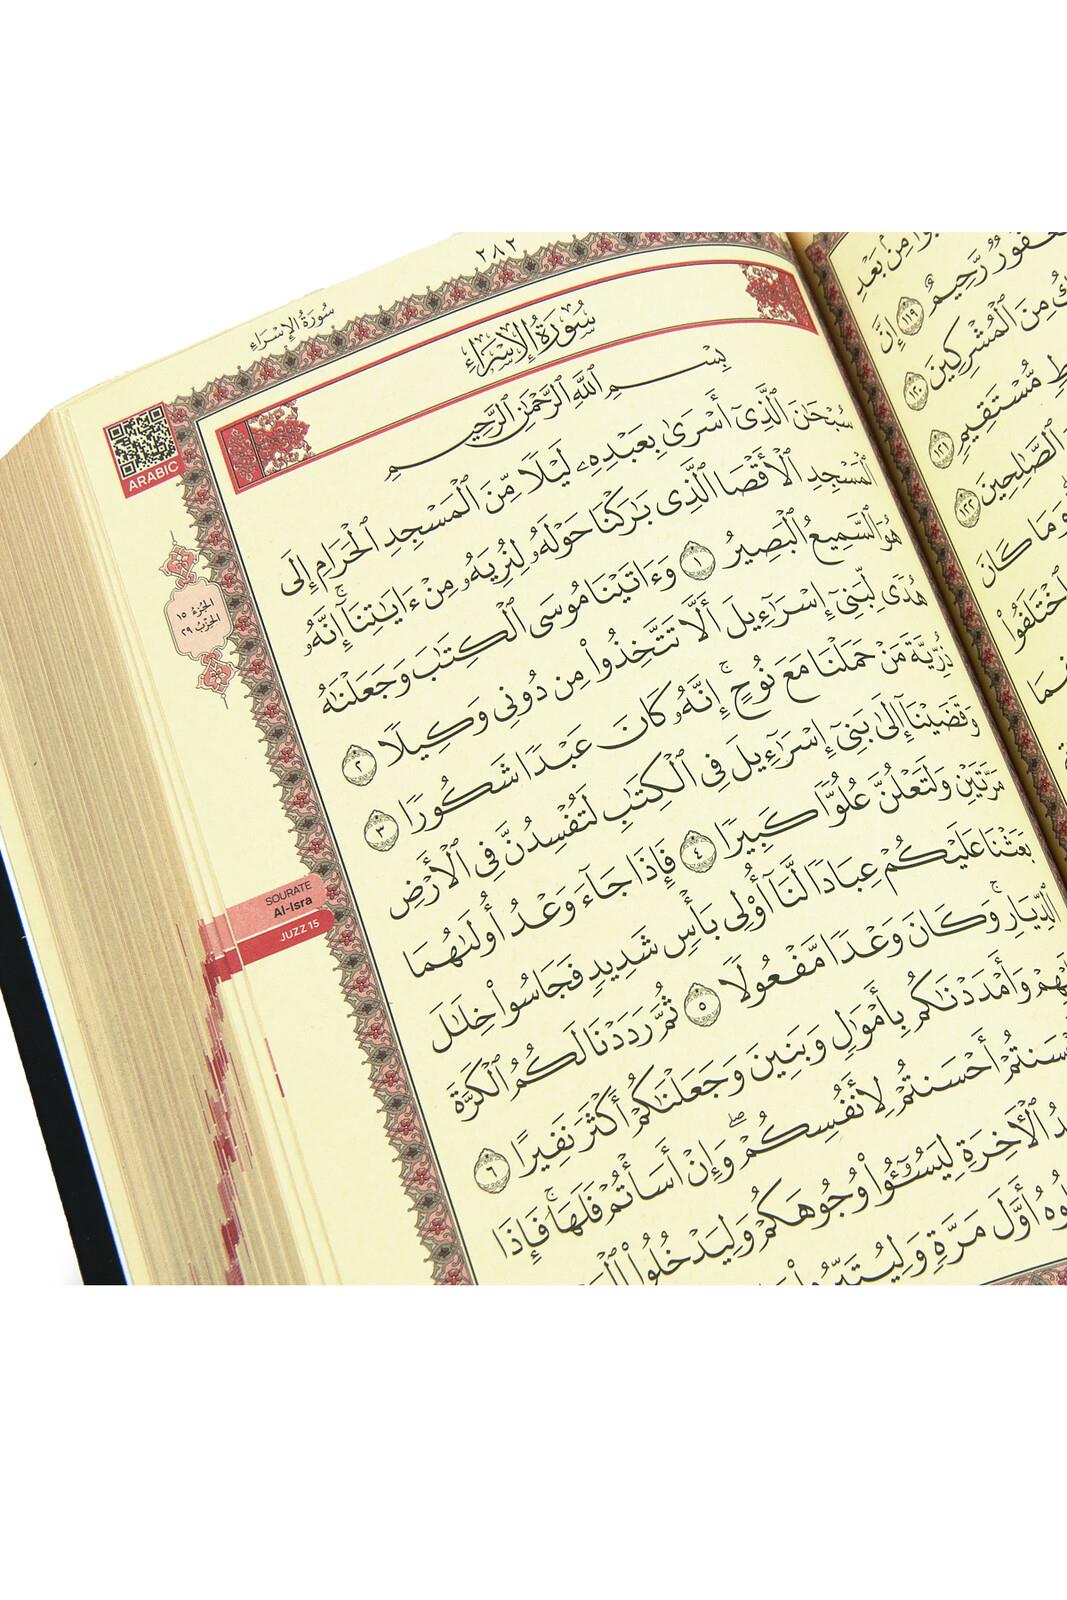 ٢٨٢
سُورَةُ الإِسْرَاء
سُورَةُ الإِسْرَاء
ARABIC
بِسْمِ ٱللَّهِ ٱلرَّحْمَٰنِ ٱلرَّحِيمِ
سُبْحَٰنَ ٱلَّذِىٓ أَسْرَىٰ بِعَبْدِهِۦ لَيْلًا مِّنَ ٱلْمَسْجِدِ ٱلْحَرَامِ إِلَى
ٱلْمَسْجِدِ ٱلْأَقْصَا ٱلَّذِى بَٰرَكْنَا حَوْلَهُۥ لِنُرِيَهُۥ مِنْ ءَايَٰتِنَآ ۚ إِنَّهُۥ
هُوَ ٱلسَّمِيعُ ٱلْبَصِيرُ ١ وَءَاتَيْنَا مُوسَى ٱلْكِتَٰبَ وَجَعَلْنَٰهُ
هُدًى لِّبَنِىٓ إِسْرَٰٓءِيلَ أَلَّا تَتَّخِذُوا۟ مِن دُونِى وَكِيلًا ٢
ذُرِّيَّةَ مَنْ حَمَلْنَا مَعَ نُوحٍ ۚ إِنَّهُۥ كَانَ عَبْدًا شَكُورًا ٣
وَقَضَيْنَآ إِلَىٰ بَنِىٓ إِسْرَٰٓءِيلَ فِى ٱلْكِتَٰبِ لَتُفْسِدُنَّ فِى ٱلْأَرْضِ
مَرَّتَيْنِ وَلَتَعْلُنَّ عُلُوًّا كَبِيرًا ٤ فَإِذَا جَآءَ وَعْدُ أُولَىٰهُمَا
بَعَثْنَا عَلَيْكُمْ عِبَادًا لَّنَآ أُو۟لِى بَأْسٍ شَدِيدٍ فَجَاسُوا۟ خِلَٰلَ
ٱلدِّيَارِ ۚ وَكَانَ وَعْدًا مَّفْعُولًا ٥ ثُمَّ رَدَدْنَا لَكُمُ ٱلْكَرَّةَ
وَأَمْدَدْنَٰكُم بِأَمْوَٰلٍ وَبَنِينَ وَجَعَلْنَٰكُمْ أَكْثَرَ نَفِيرًا ٦
أَحْسَنتُمْ لِأَنفُسِكُمْ ۖ وَإِنْ أَسَأْتُمْ فَلَهَا ۚ فَإِذَا
ٱلْءَاخِرَةِ لِيَسُۥٓـُٔوا۟ وُجُوهَكُمْ وَلِيَدْخُلُوا۟
أَوَّلَ مَرَّةٍ
الجُزْءُ ١٥
الحِزْبُ ٢٩
SOURATE
Al-Isra
JUZZ 15
مِنۢ بَعْدِ
رَّحِيمٌ ١١٩ إِنَّ
مِنَ ٱلْمُشْرِكِينَ ١٢٠
مُّسْتَقِيمٍ ١٢١
ٱلصَّٰلِحِينَ ١٢٢
وَمَا كَانَ
ٱخْتَلَفُوا۟